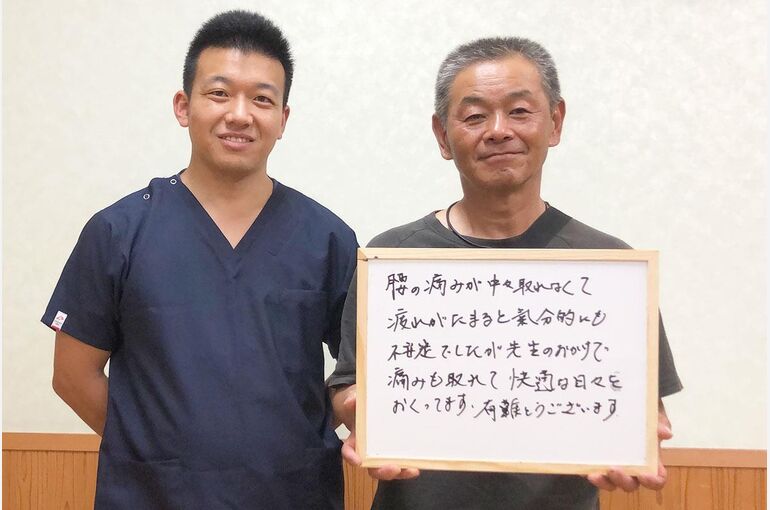 腰の痛みが中々取れなくて
疲れがたまると氣分的にも
不安定でしたが先生のおかげで
痛みも取れて快適な日々を
おくってます。有難とうございます